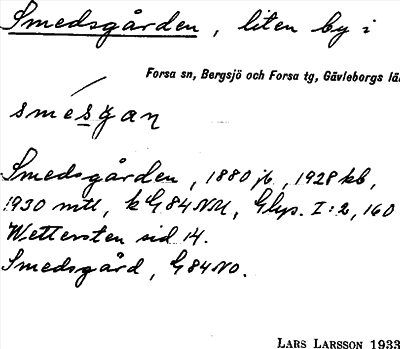 Smedsgården, liten by i
Forsa sn, Bergsjö och Forsa tg, Gävleborgs lä
smesgan
Smedsgården, 1880 jb, 1928 kb,
1930 mtl, k G84NU, Glys. I:2, 160
Wettersten sid 14.
Smedsgård, G84NO.
LARS LARSSON 1933